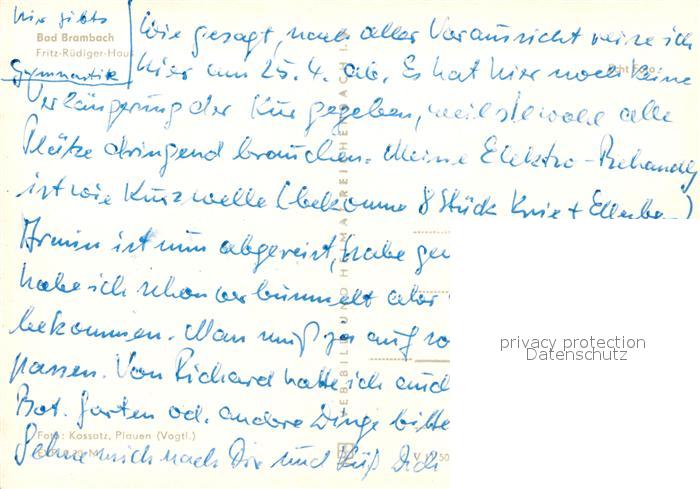 hier gibts
Bad Brambach
Fritz-Rüdiger-Haus
Gymnastik
Wie gesagt, nach aller Voraussicht reise ich
hier am 25.4. ab. Es hat hier noch keine
Verlängerung der Kur gegeben, weil sie wohl alle
Plätze dringend brauchen. Meine Elektro-Behandlg
ist wie Kurzwelle (bekomme 8 Stück Knie + Ellenbo.)
Armin ist nun abgereist, habe
habe ich schon verbummelt aber
bekommen. Man muß ja auf so
passen. Von Richard hatte ich auch
Bot. Garten od. andere Dinge bitte
Foto: Kossatz, Plauen (Vogtl.)
Sehne mich nach Dir und küß Dich
BILD UND HEIMAT REICHENBACH I.
privacy protection
Datenschutz